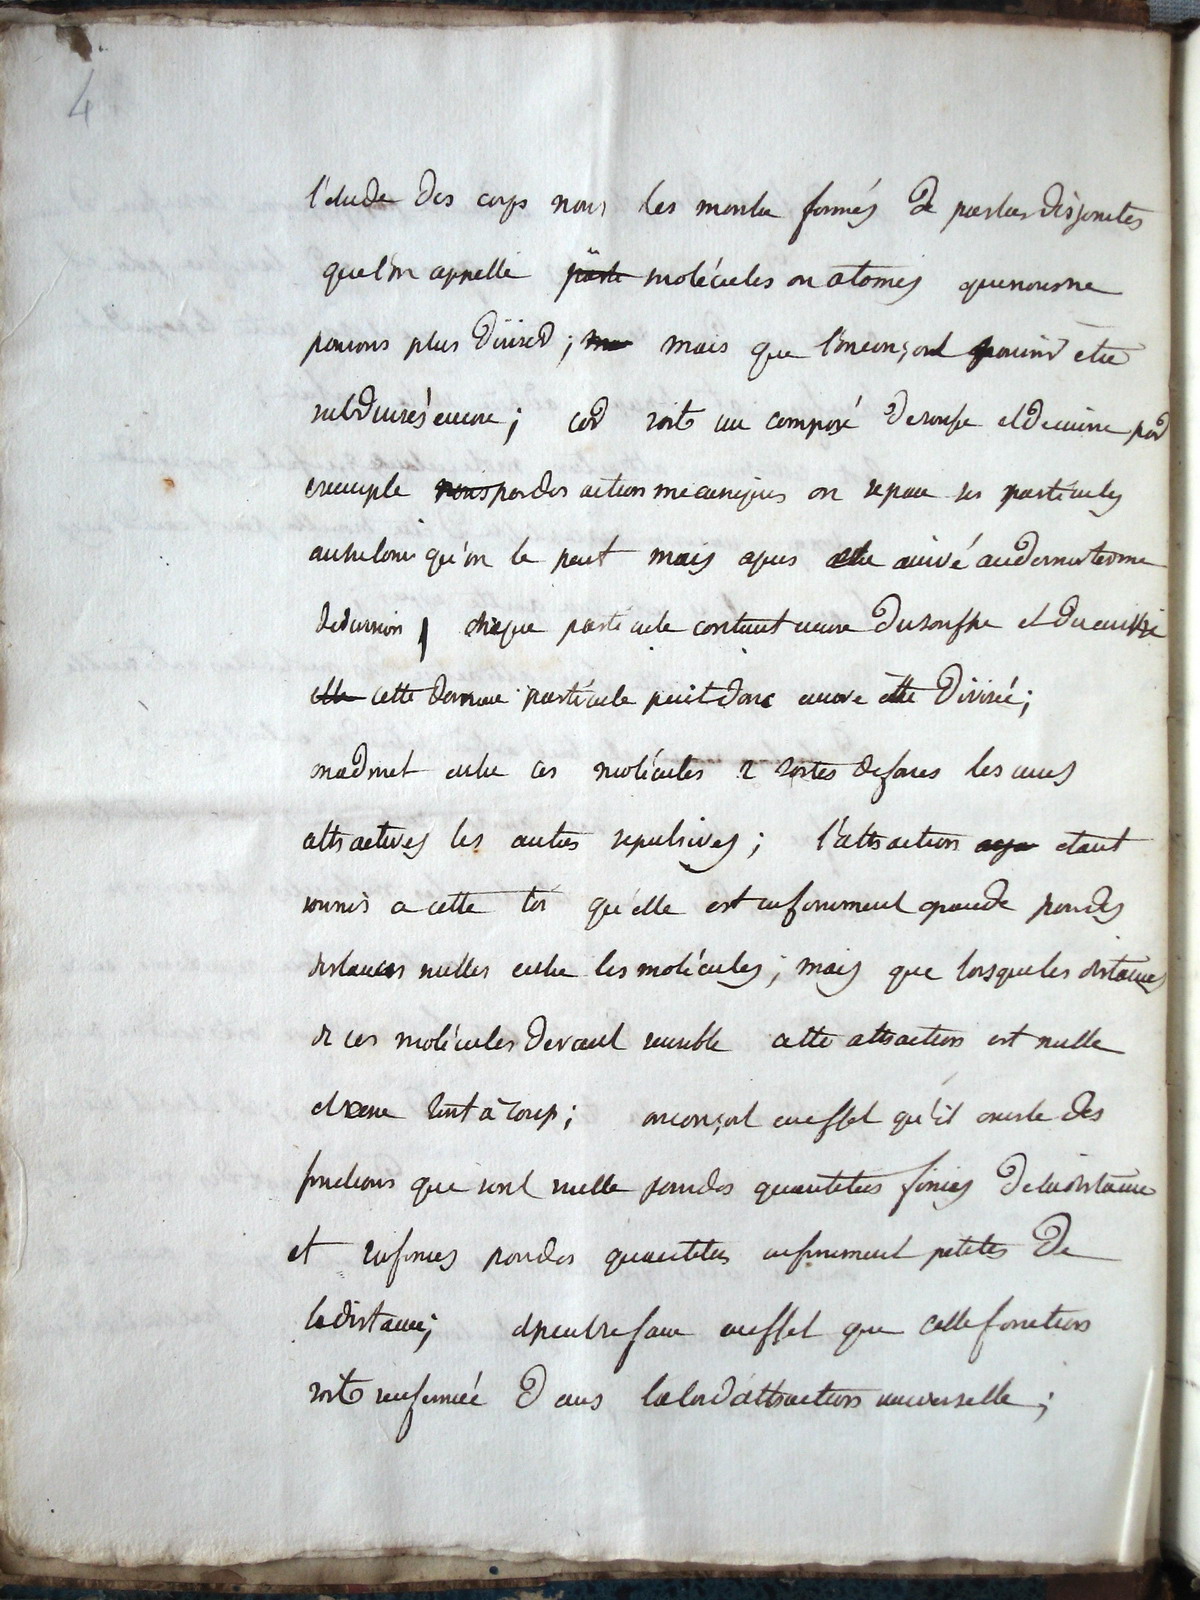 4
l'etude des corps nous les montre formés de parties disjointes
que l'on appelle parti molécules ou atomes que nous ne
pouvons plus diviser ; ma mais que l'on conçoit pouvoir etre
subdivisés encore ; car soit un composé de soufre et de cuivre par
exemple nous par des actions mecaniques on separe ses particules
aussi loin qu'on le peut mais apres etre arrivé au dernier terme
de division , chaque particule contient encore du soufre et du cuivre
elle cette derniere particule peut donc encore etre divisée ;
on admet entre ces molécules 2 sortes de forces les unes
attractives les autres repulsives ; l'attraction etant
soumis a cette loi qu'elle est infiniment grande pour des
distances nulles entre les molécules ; mais que lorsque les distances
de ces molécules devient sensible cette attraction est nulle
et cesse tout à coup ; on conçoit en effet qu'il existe des
fonctions que sont nulle pour des quantités finies de la distance
et infinies pour des quantités infiniment petites de
la distance ; il peut se faire en effet que cette fonction
soit renfermée dans la loi d'attraction universelle ;